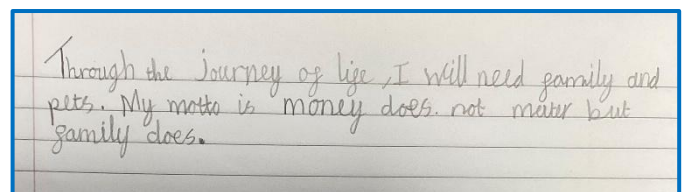 Through the journey of life, I will need family and
pets. My motto is money does. not mater but
family does.